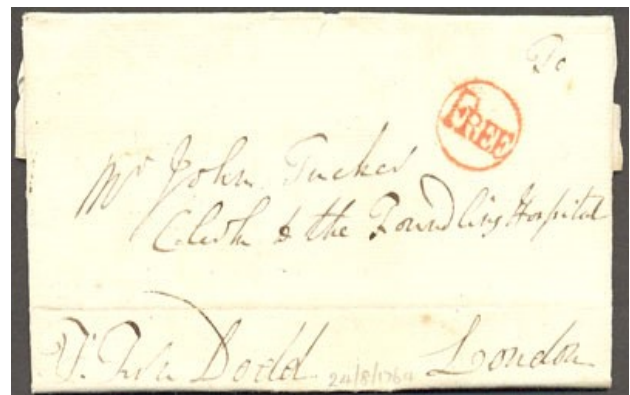 To
FREE
Mr John Tucker
Clerk to the Foundling Hospital
Dodd London
24/8/1764